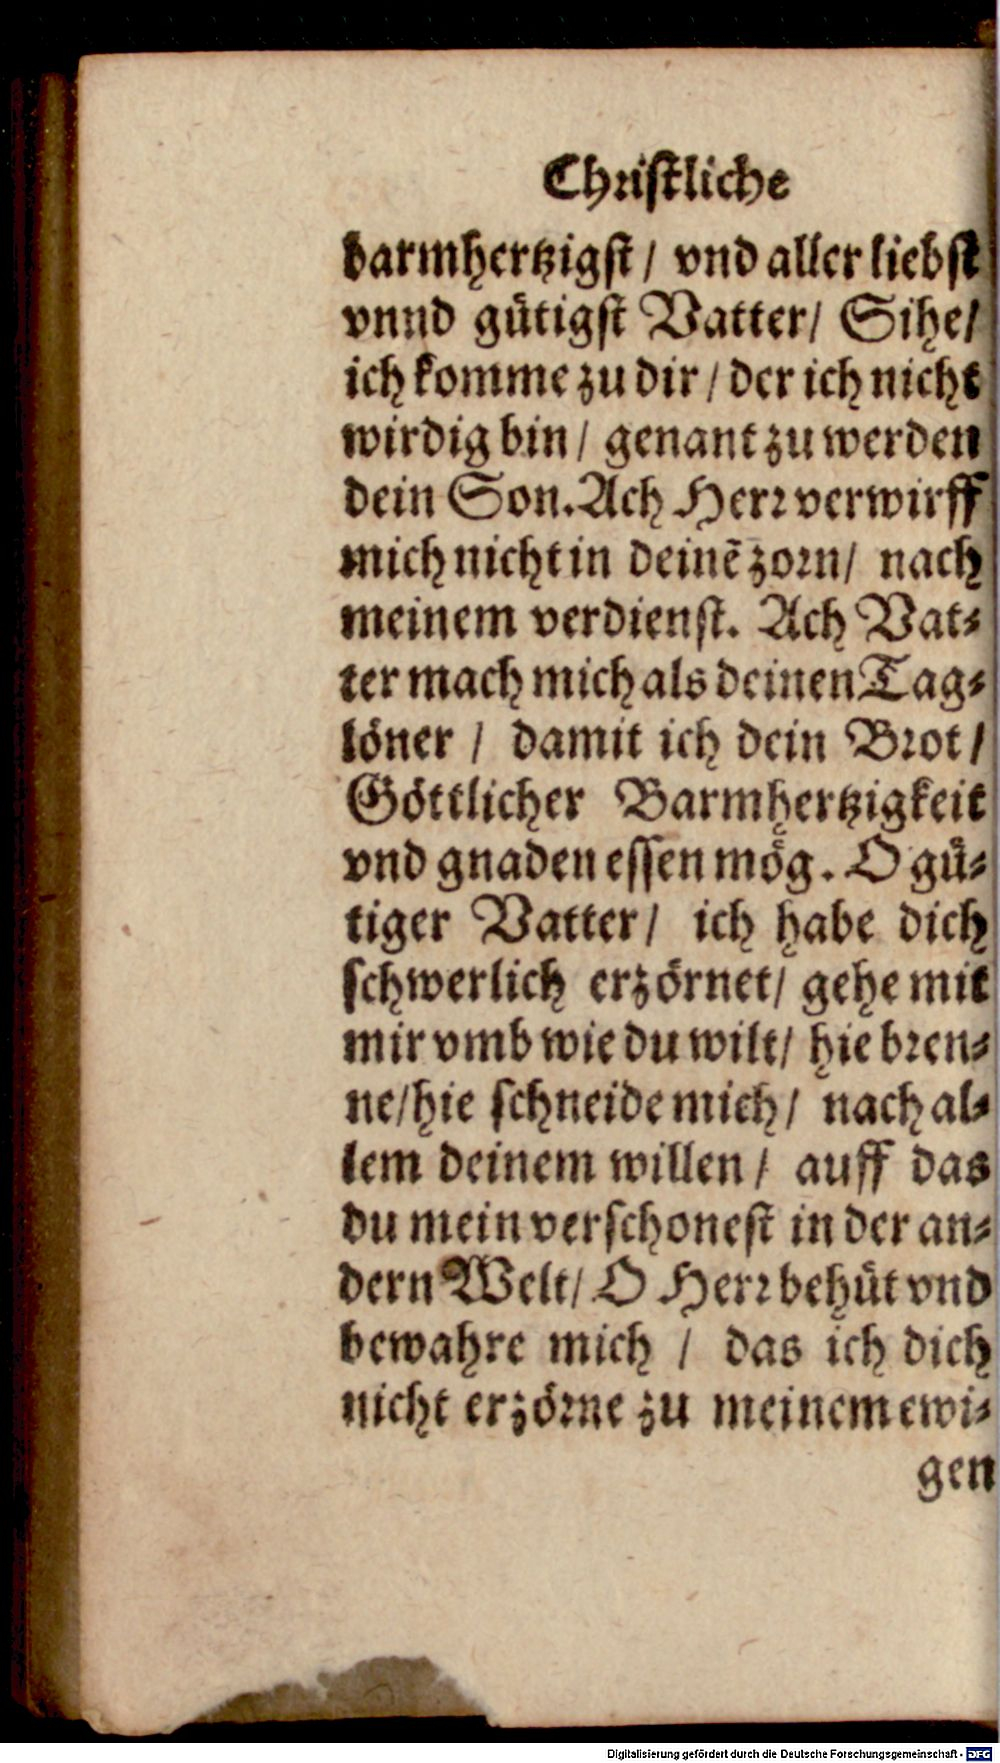 Christliche
barmhertzigst / vnd aller liebst
vnnd gütigst Vatter / Sihe /
ich komme zu dir / der ich nicht
wirdig bin / genant zu werden
dein Son. Ach Herr verwirff
mich nicht in deinē zorn / nach
meinem verdienst. Ach Vat-
ter mach mich als deinen Tag-
löner / damit ich dein Brot /
Göttlicher Barmhertzigkeit
vnd gnaden essen mög. O gü-
tiger Vatter / ich habe dich
schwerlich erzörnet / gehe mit
mir vmb wie du wilt / hie bren-
ne / hie schneide mich / nach al-
lem deinem willen / auff das
du mein verschonest in der an-
dern Welt / O Herr behüt vnd
bewahre mich / das ich dich
nicht erzörne zu meinem ewi-
gen
Digitalisierung gefördert durch die Deutsche Forschungsgemeinschaft - DFG